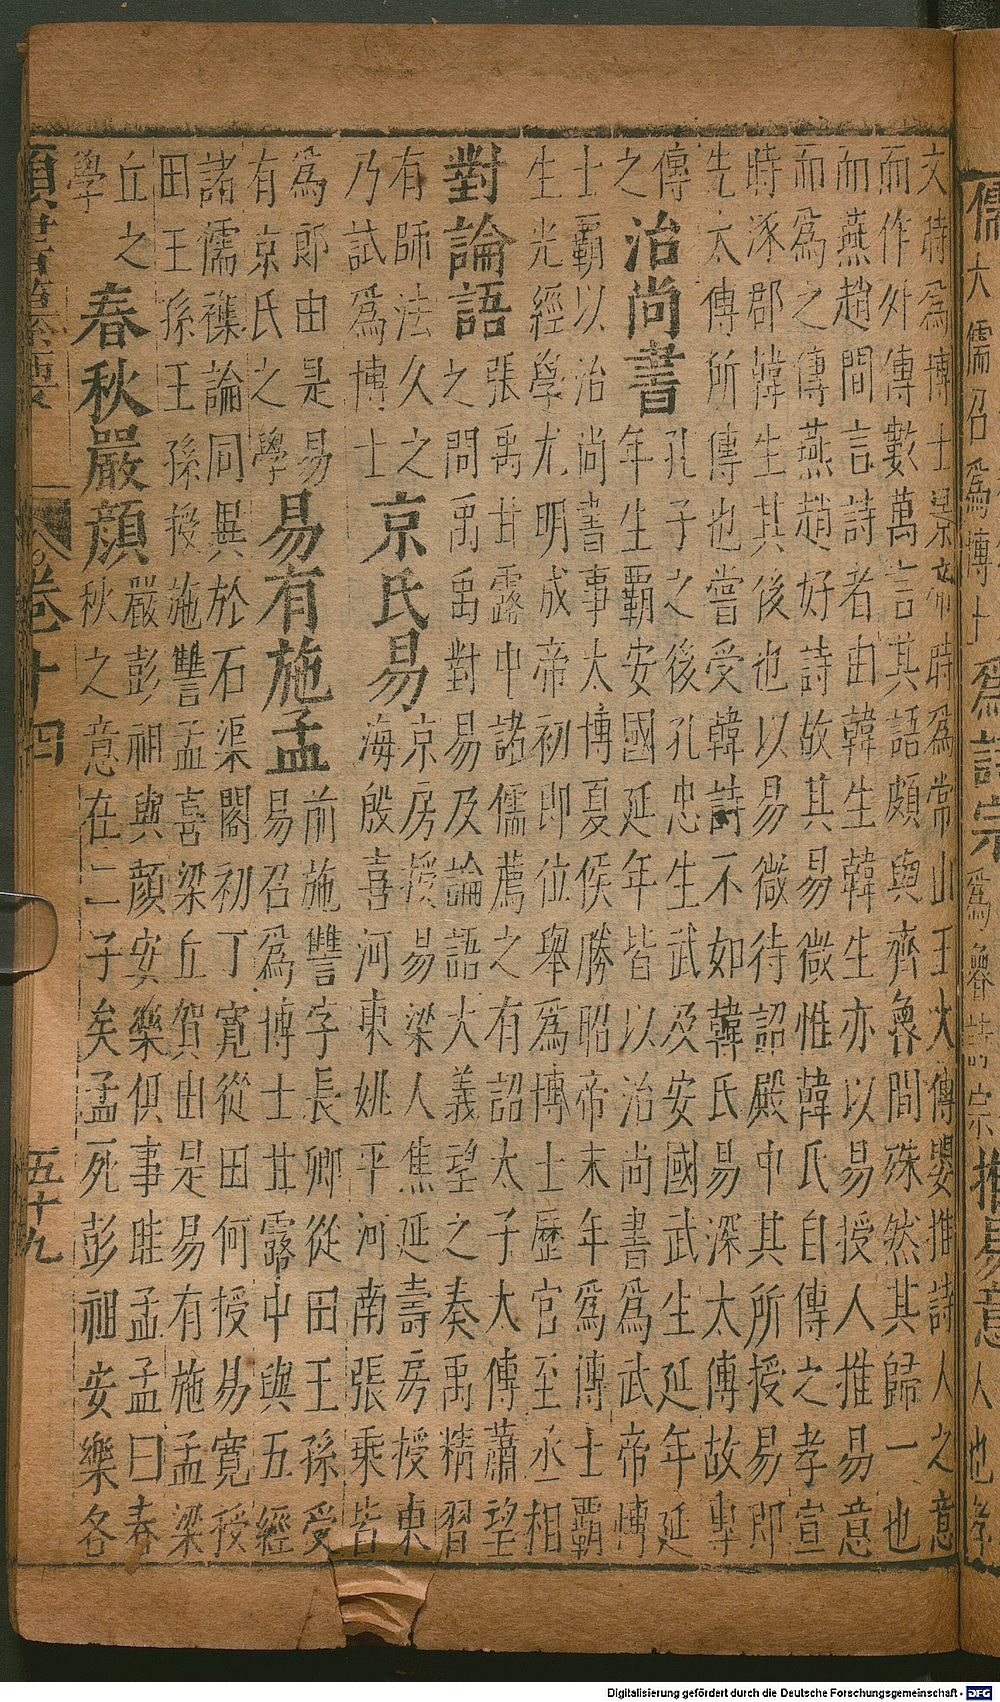 儒大儒召爲博士
爲詩宗爲魯詩宗
推易意人也
文時爲博士景帝時爲常山王太傅嬰推詩人之意
而作外傳數萬言其語頗與齊魯間殊然其歸一也
而燕趙間言詩者由韓生韓生亦以易授人推易意
而爲之傳燕趙好詩故其易微惟韓氏自傳之孝宣
時涿郡韓生其後也以易徵待詔殿中其所授易即
先太傅所傳也嘗受韓詩不如韓氏易深太傅故專
傳之
治尚書
孔子之後孔忠生武及安國武生延年延
年生霸安國延年皆以治尚書爲武帝博
士霸以治尚書事太博夏侯勝昭帝末年爲博士霸
生光經學尤明成帝初即位舉爲博士歷官至丞相
對論語
張禹甘露中諸儒薦之有詔太子大傅蕭望
之問禹禹對易及論語大義望之奏禹精習
有師法久之
乃試爲博士
京氏易
京房授易梁人焦延壽房授東
海殷喜河東姚平河南張乘皆
爲郎由是易
有京氏之學
易有施孟
前施讐字長卿從田王孫受
易召爲博士甘露中與五經
諸儒襍論同異於石渠閣初丁寬從田何授易寬授
田王孫王孫授施讐孟喜梁丘賀由是易有施孟梁
丘之
學
春秋嚴顔
嚴彭祖與顔安樂俱事眭孟孟曰春
秋之意在二子矣孟死彭祖安樂各
類書纂要
卷十四
五十九
Digitalisierung gefördert durch die Deutsche Forschungsgemeinschaft - DFG